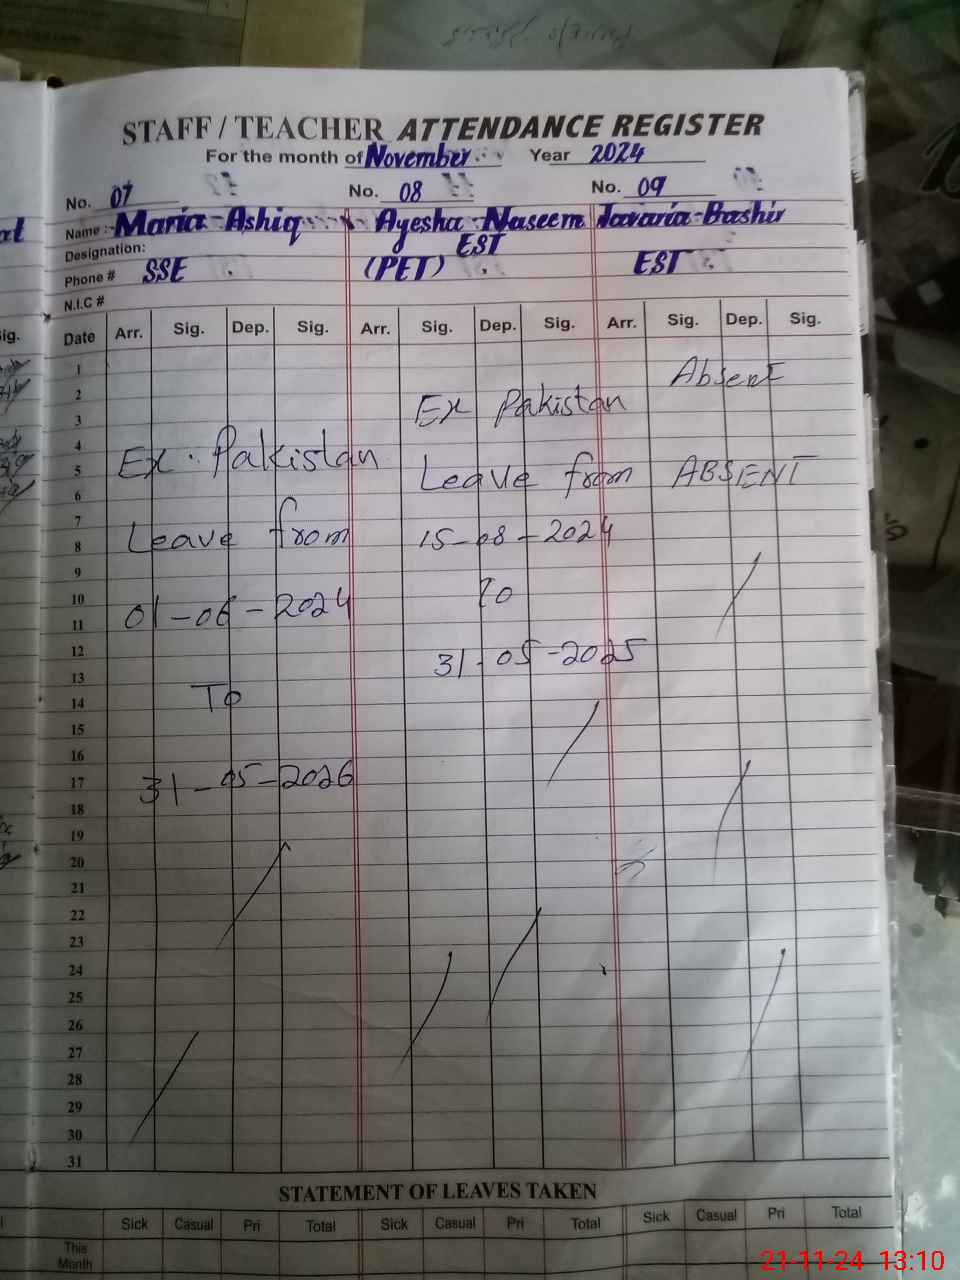 STAFF / TEACHER ATTENDANCE REGISTER
For the month of November Year 2024
No. 07 No. 08 No. 09
Name :- Maria Ashiq Ayesha Naseem Javaria Bashir
Designation: EST
Phone # SSE (PET) EST
N.I.C #
Date Arr. Sig. Dep. Sig. Arr. Sig. Dep. Sig. Arr. Sig. Dep. Sig.
1 Absent
2
3 Ex Pakistan
4
5 Ex. Pakistan Leave from ABSENT
6
7
8 Leave from 15-08-2024
9
10 To
11 01-06-2024
12
13 31-05-2025
14 To
15
16
17 31-05-2026
18
19
20
21
22
23
24
25
26
27
28
29
30
31
STATEMENT OF LEAVES TAKEN
Sick Casual Pri Total Sick Casual Pri Total Sick Casual Pri Total
This
Month
21-11-24 13:10